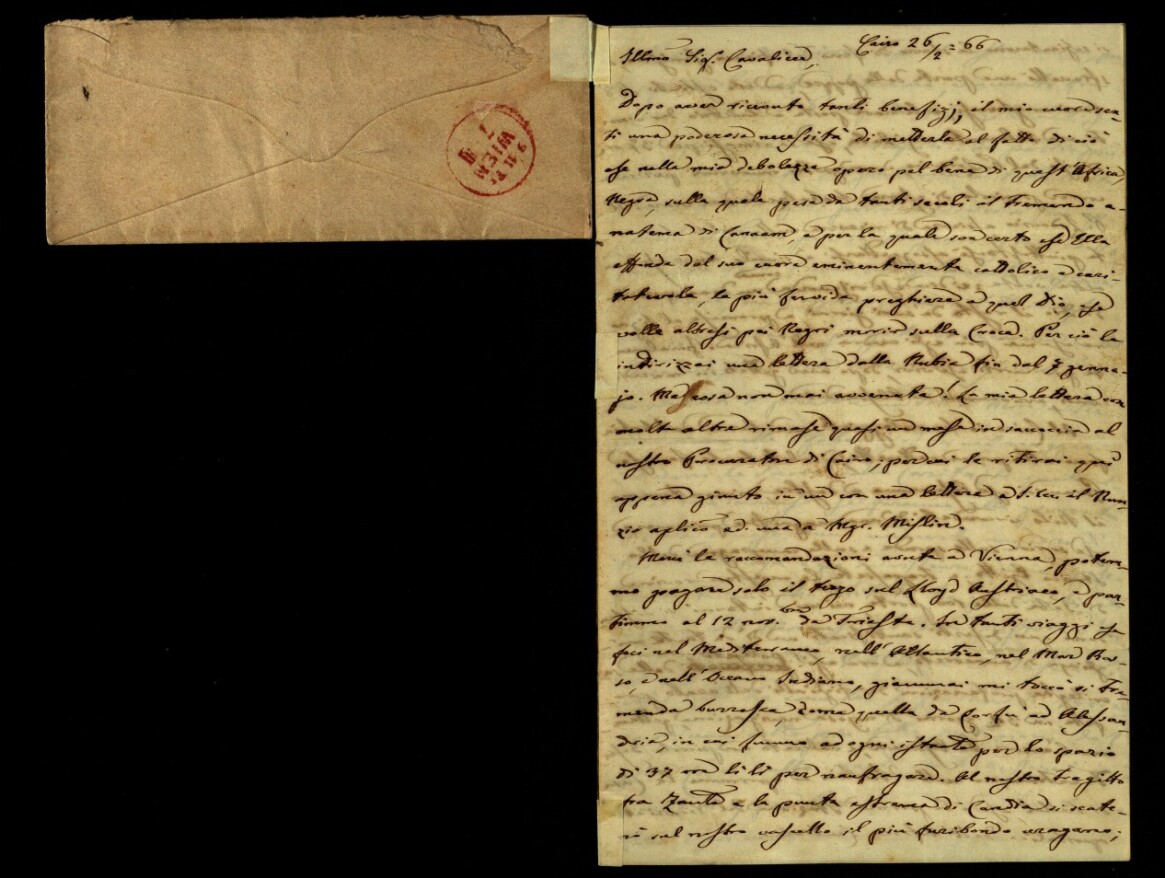 WIEN
7
III
Cairo 26/2 = 66
Illmo Sig.r Cavaliere,
Dopo aver ricevuto tanti benefizj, il mio cuore sen-
ti una poderosa necessità di metterla al fatto di ciò
che nella mia debolezza opero pel bene di quest'Africa
Negra, sulla quale pesa da tanti secoli il tremendo a-
natema di Canaam, e per la quale son certo che Ella
effonde dal suo cuore eminentemente cattolico e cari-
tatevole, le più fervide preghiere a quel Dio, che
volle altresì pei Negri morir sulla Croce. Perciò le
indirizzai una lettera dalla Nubia fin dal 7 genna-
jo. Ma cosa non mai avvenuta! La mia lettera con
molte altre rimase quasi un mese in saccoccia al
nostro Procuratore di Cairo; per cui le ritirai qui
appena giunto in un con una lettera a S. Ecc. il Nun-
zio aplico ed una a Mgr. Mislin.
Mercè le raccomandazioni avute a Vienna, potem-
mo pagare solo il terzo sul Lloyd Austriaco, e par-
timmo al 12 nov.bre da Trieste. In tanti viaggi che
feci nel Mediterraneo, nell'Atlantico, nel Mar Ros-
so, e nell'Oceano Indiano, giammai mi toccò sì tre-
menda burrasca, come quella da Corfù ad Alessan-
dria, in cui fummo ad ogni istante per lo spazio
di 37 ore lì lì per naufragare. Al nostro tragitto
fra Zante e la punta estrema di Candia si scate-
nò sul nostro vascello il più furibondo uragano;